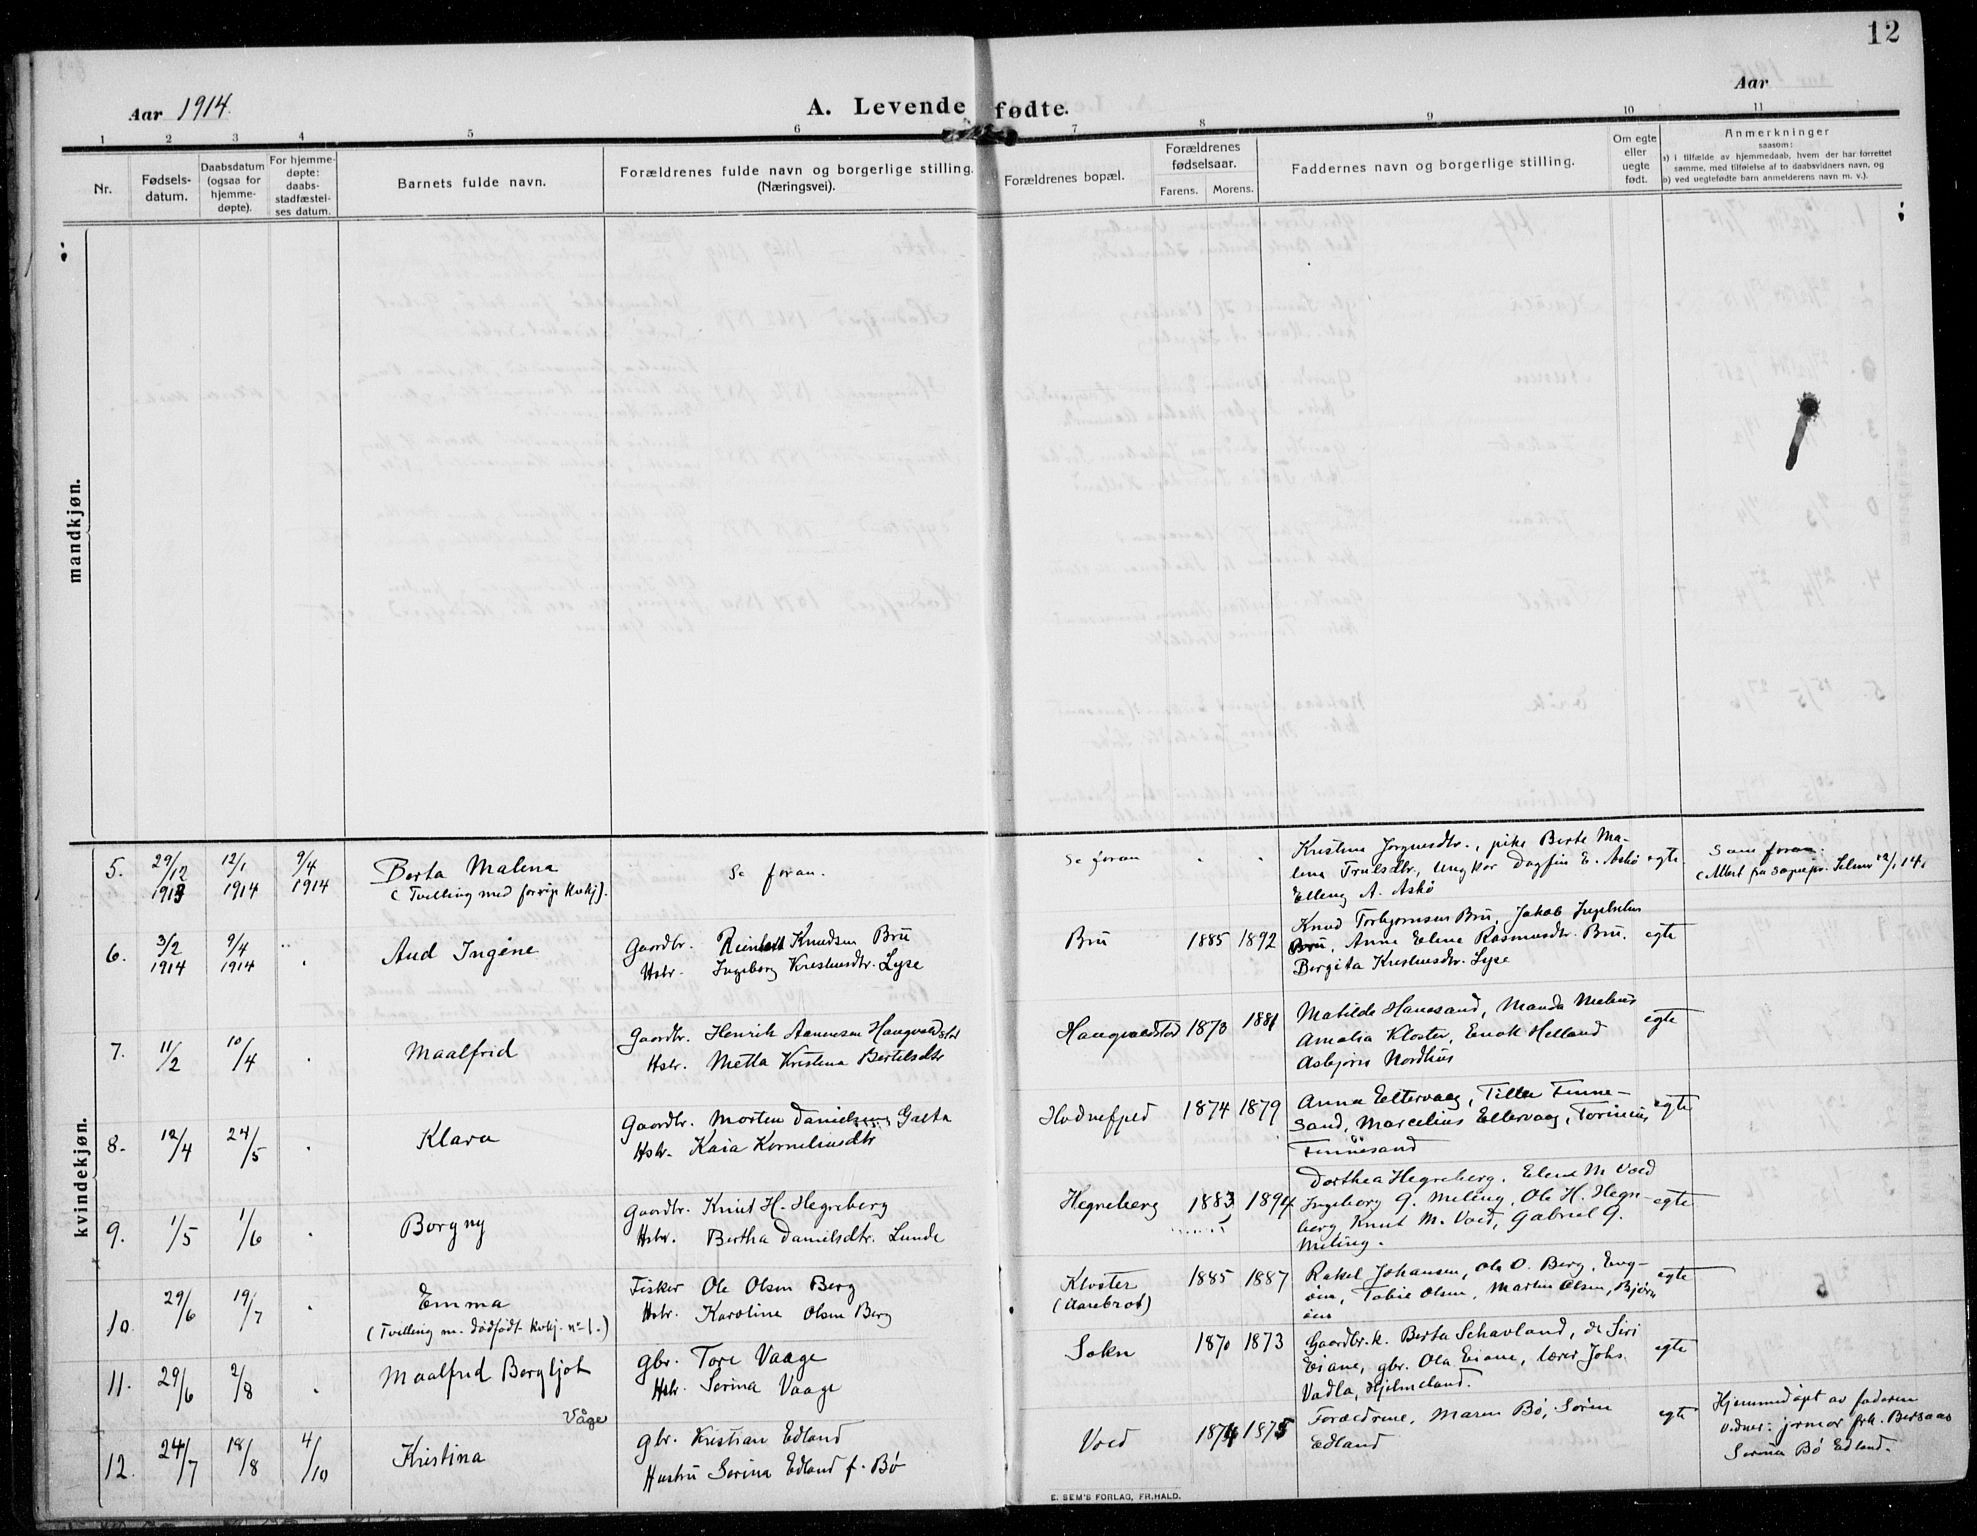 12
Aar 1914.
A. Levende fødte.
Aar
1 2 3 4 5 6 7 8 9 10 11
Nr.
Fødsels-
datum.
Daabsdatum
(ogsaa for
hjemme-
døpte).
For hjemme-
døpte:
daabs-
stadfæstel-
ses datum.
Barnets fulde navn.
Forældrenes fulde navn og borgerlige stilling.
(Næringsvei).
Forældrenes bopæl.
Forældrenes
fødselsaar.
Farens. Morens.
Faddernes navn og borgerlige stilling.
Om egte
eller
uegte
født.
Anmerkninger
saasom:
a) i tilfælde av hjemmedaab, hvem der har forrettet
samme, med tilføielse af to daabsvidners navn, og
b) ved uegtefødte barn anmelderens navn m. v.).
mandkjøn.
kvindekjøn.
5.
29/12
1913
12/1
1914
9/4
1914
Berta Malena
(Tvilling med forrige kvkj).
Se foran.
Se foran
Kristine Jorgnesdtr., pike Berte Ma-
lena Trulsdtr, Ungkar Dagfin E. Askø
Elleng A. Askø
egte
Som foran.
6.
3/2
1914
9/4
1914
Aud Ingéne
Gaardbr. Knudsen Bru
Hstr. Ingeborg Kristensdtr. Lyse
Bru
1885 1892
Knud Torbjørnsen Bru, Jakob
Bru, Anna Elene Rasmusdtr. Bru.
Bergita Kristensdtr. Lyse
egte
7.
11/2
10/4
Maalfrid
Gaardbr. Henrik Haugvaldstad
Hstr. Metta Kristina Bertelsdtr
Haugvaldstad
1873 1881
Matilde Hanasand, Manda
Amalia Kloster, Enok Helland
Asbjørn Nordhus
egte
8.
12/4
24/5
Klara
Gaardbr. Morten Danielsen Galta
Hstr. Kaia Korneliusdtr
Hodnefjeld
1874 1879
Anna Eltervaag, Tilla Finne-
sand, Marcelius Eltervaag,
Finnesand
egte
9.
1/5
1/6
Borgny
Gaardbr. Knut H. Hegreberg
Hstr. Bertha Danielsdtr. Lunde
Hegreberg
1883 1894
Dorthea Hegreberg, Elena M Voed
Ingeborg G. Meling, Ole H. Hegre-
berg Knut M. Voed, Gabriel G.
Meling.
egte
10.
29/6
19/7
Emma
(Tvilling m. dödfödt kvkj. nr 1.)
Fisker Ole Olsen Berg
Hstr. Karoline Olsen Berg
Kloster
(Aarebrot)
1885 1887
Rakel Johansen, Ole O. Berg, Eng-
øen, Tobie Olsen, Martin Olsen, Bjørn
øen
egte
11.
29/6
2/8
Maalfrid Bergljot
Våge
gbr. Tore Vaage
Hstr. Serina Vaage
Sokn
1870 1873
Gaardbr.k. Berta Schavland, do Siri
Eiane, gbr. Ola Eiane, lærer Johs.
Vadla, Hjelmeland.
egte
12.
24/7
18/8
4/10
Kristina
gbr. Kristian Edland
Hustru Serina Edland f. Bø
Voed
1874 1875
Forældrene, Maren Bø, Sørine
Edland
egte
Hjemmedöpt av faderen
vidner: jormor frk. Bersaas
Serina Bø Edland.
E. SEM'S FORLAG, FR.HALD.